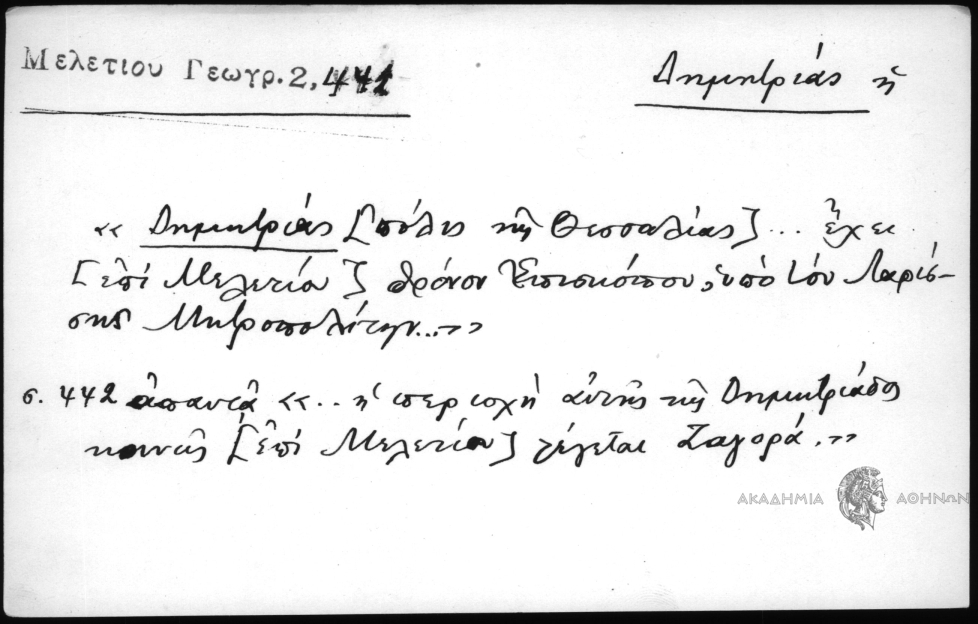 Μελετίου Γεωγρ. 2, 441
Δημητριάς ἡ
«Δημητριάς [πόλις τῆς Θεσσαλίας]... ἔχει
[ἐπί Μελετίου] θρόνον Ἐπισκόπου, ὑπό τόν Λαρίσ-
σης Μητροπολίτην...»
σ. 442 ἀπαντᾶ «.. ἡ περιοχή αὐτῆς τῆς Δημητριάδος
κοινῶς [ἐπί Μελετίου] λέγεται Ζαγορά.»
ΑΚΑΔΗΜΙΑ ΑΘΗΝΩΝ